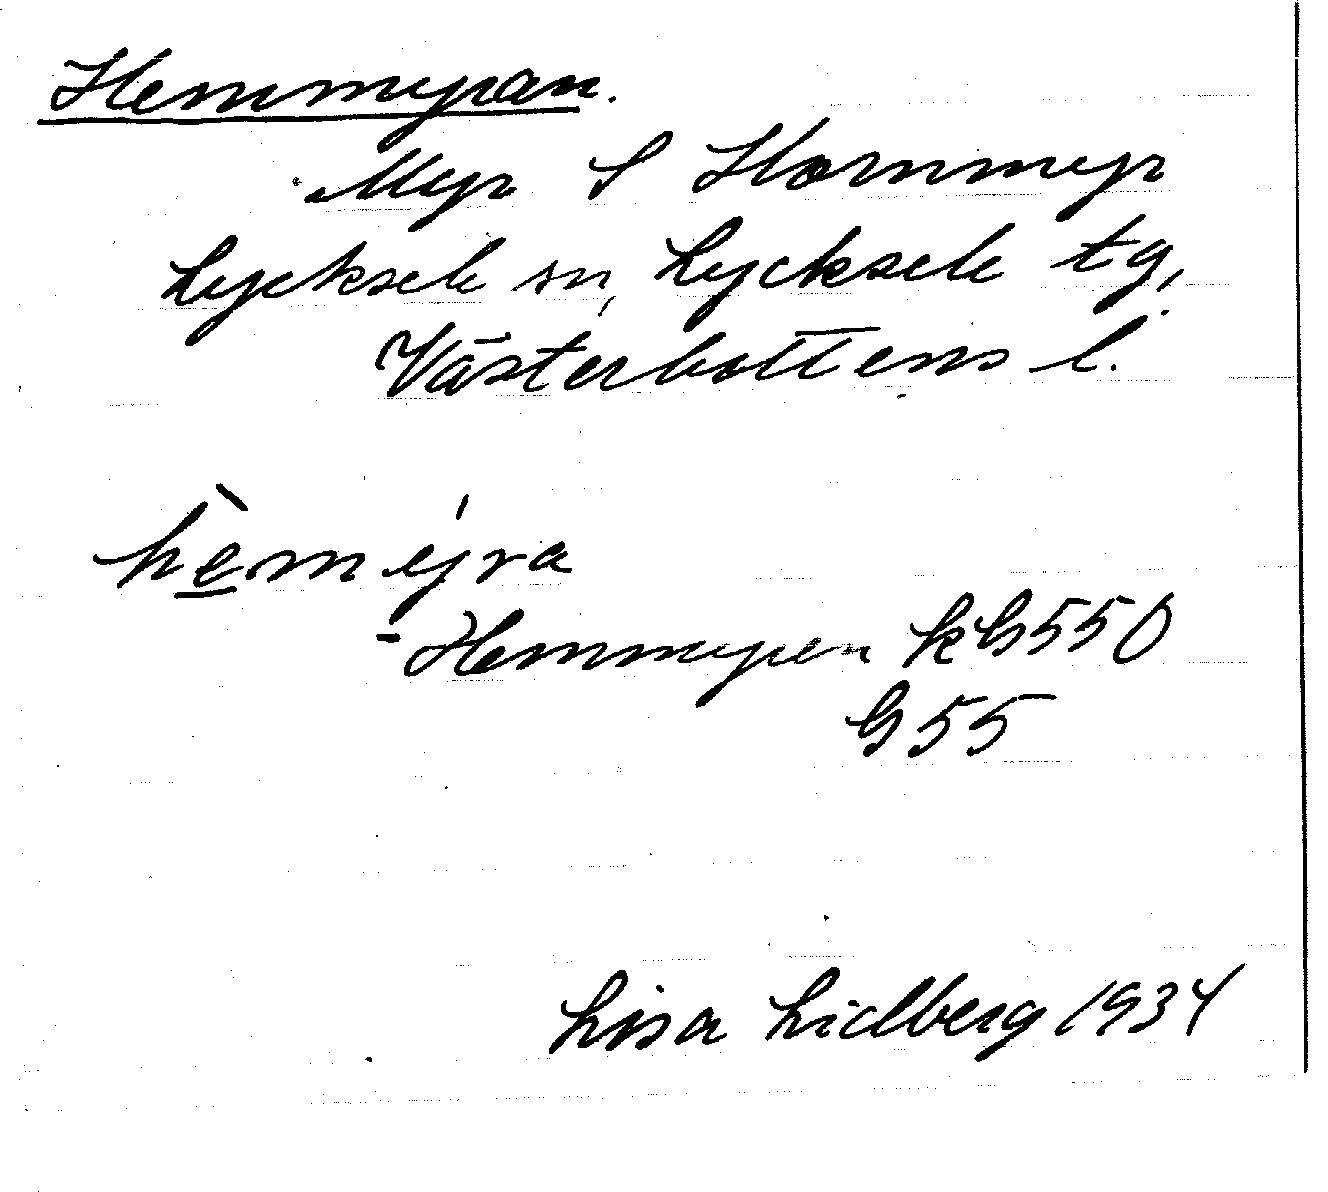 Hemmyran.
Myr S Hornmyr
Lycksele sn, Lycksele tg,
Västerbottens l.
hèmýra
- Hemmyren kG550
G55
Lisa Lidberg 1934